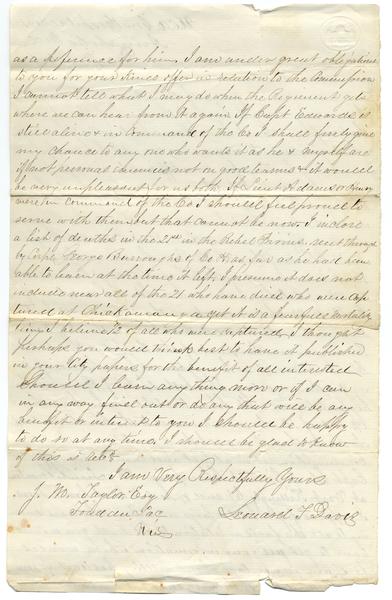 as a reference for him. I am under great obligations
to you for your kind offer in relation to the Commission
I cannot tell what I may do when the Regiment gets
where we can hear from it again. If Capt Edwards is
still alive & in command of the Co I shall surely give
my chance to any one who wants it as he & myself are
if not personal enemies not on good terms & it would
be very unpleasant for us both. If Lieut Adams or
were in command of the Co I should feel proud to
serve with them but that cannot be now. I inclose
a list of deaths in the 21st in the Rebel Prisons sent through
by Corpl George Burroughs of Co H as far as he had been
able to learn at the time it left. I presume it does not
include near all of the 21 who have died who were cap
tured at Chickamauga yet it is a fearful mortality
being I believe of all who were captured. I thought
perhaps you would think best to have it published
in your City papers for the benefit of all interested
Should I learn anything more or if I can
in any way find out or do any that will be any
benefit or interest to you I should be happy
to do so at any time. I should be glad to know
of this at
I am Very Respectfully Yours
J. M. Taylor Esq Leonard T Davis
Fond du Lac
Wis